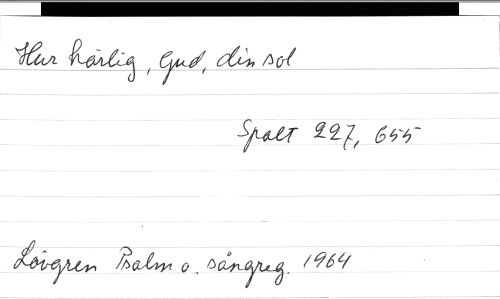 Hur härlig, Gud, din sol
Spalt 227, 655
Lövgren Psalm o. sångreg. 1964